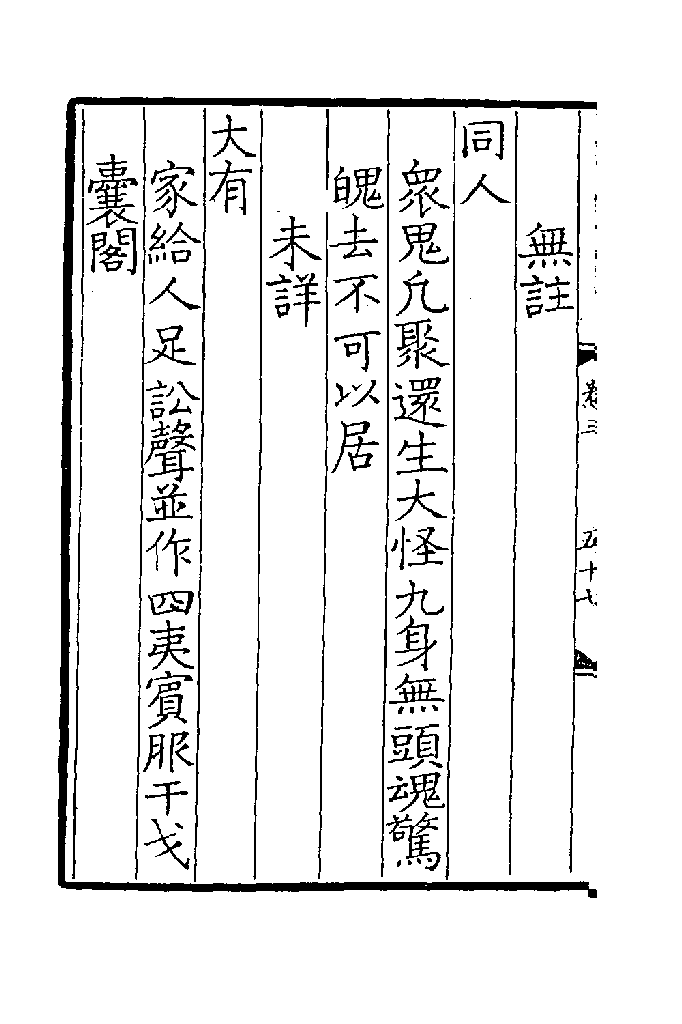 無註
同人
衆鬼凡聚還生大怪九身無頭魂驚
魄去不可以居
未詳
大有
家給人足訟聲並作四夷賓服干戈
囊閣
卷三
五十七